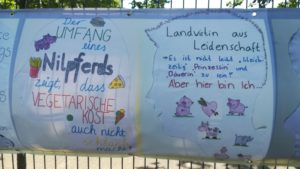 Der
UMFANG
eines
Nilpferds
zeigt, dass
VEGETARISCHE
KOST
auch nicht
schlank
macht
Landwirtin aus
Leidenschaft
Es ist nicht leicht, gleich-
zeitig "Prinzessin" und
Bäuerin zu sein!
Aber hier bin ich...